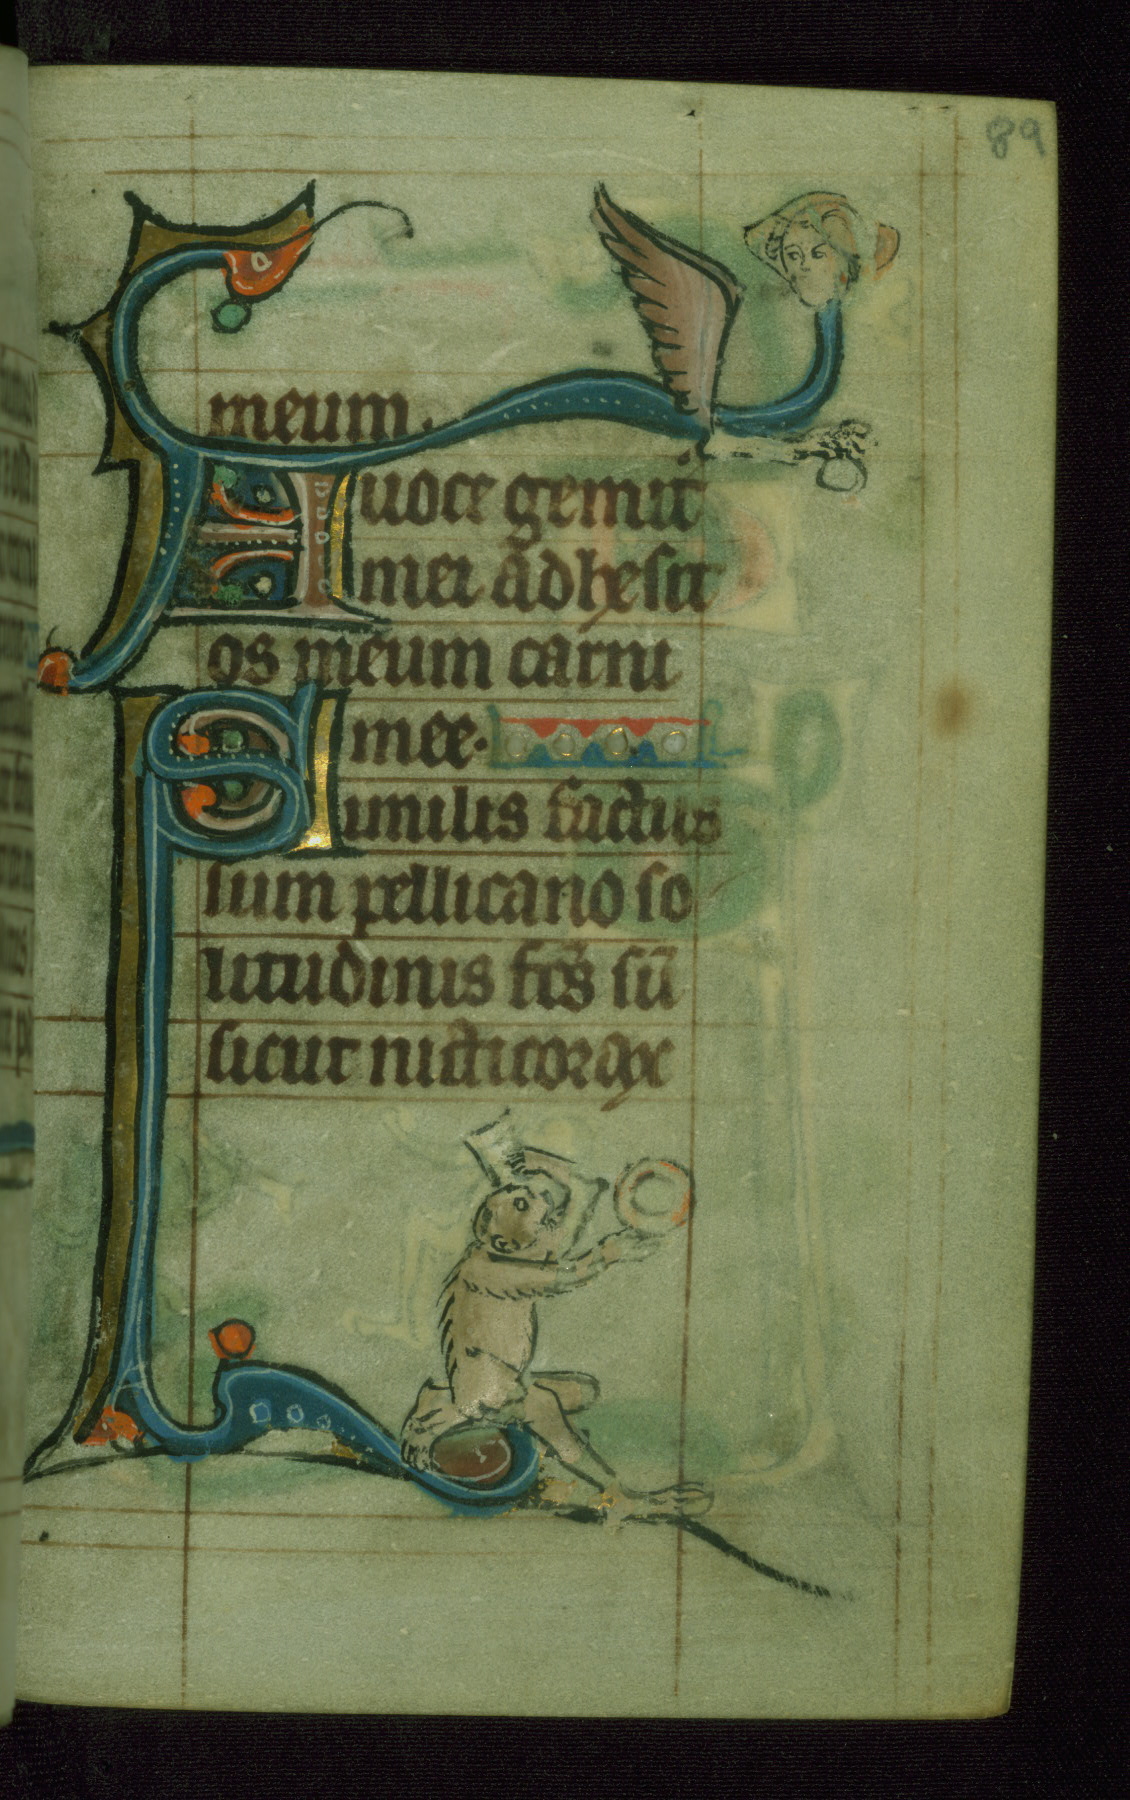 89
meum.
A uoce gemit
mei adhesit
os meum carni
mee.
Similis factus
sum pellicano so
litudinis fc̄s sū
sicut nicticorax